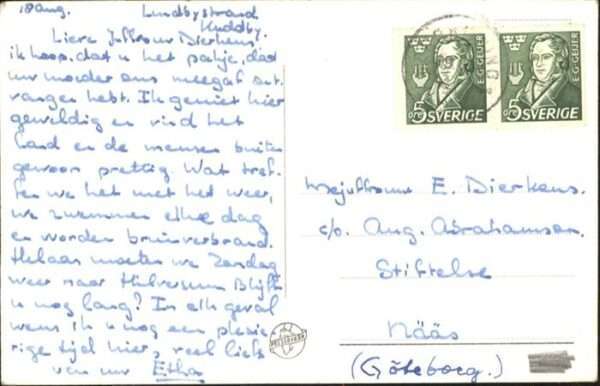 18 aug. Lundbystrand
Huddby.
Lieve Juffrouw Dierkens,
ik hoop, dat u het pakje, dat
uw moeder ons meegaf ont-
vangen hebt. Ik geniet hier
geweldig en vind het
land en de mensen buiten
gewoon prettig. Wat tref-
fen we het met het weer,
we zwemmen elke dag
en worden bruinverbrand.
Helaas moeten we Zondag
weer naar Hilversum. Blijft
u nog lang? In elk geval
wens ik u nog een plezie-
rige tijd hier, veel liefs
van uw Etha
5 öre SVERIGE E.G. GEIJER
5 öre SVERIGE E.G. GEIJER
Mejuffrouw E. Dierkens.
c/o Aug. Abrahamson
Stiftelse
Nääs
(Göteborg.)